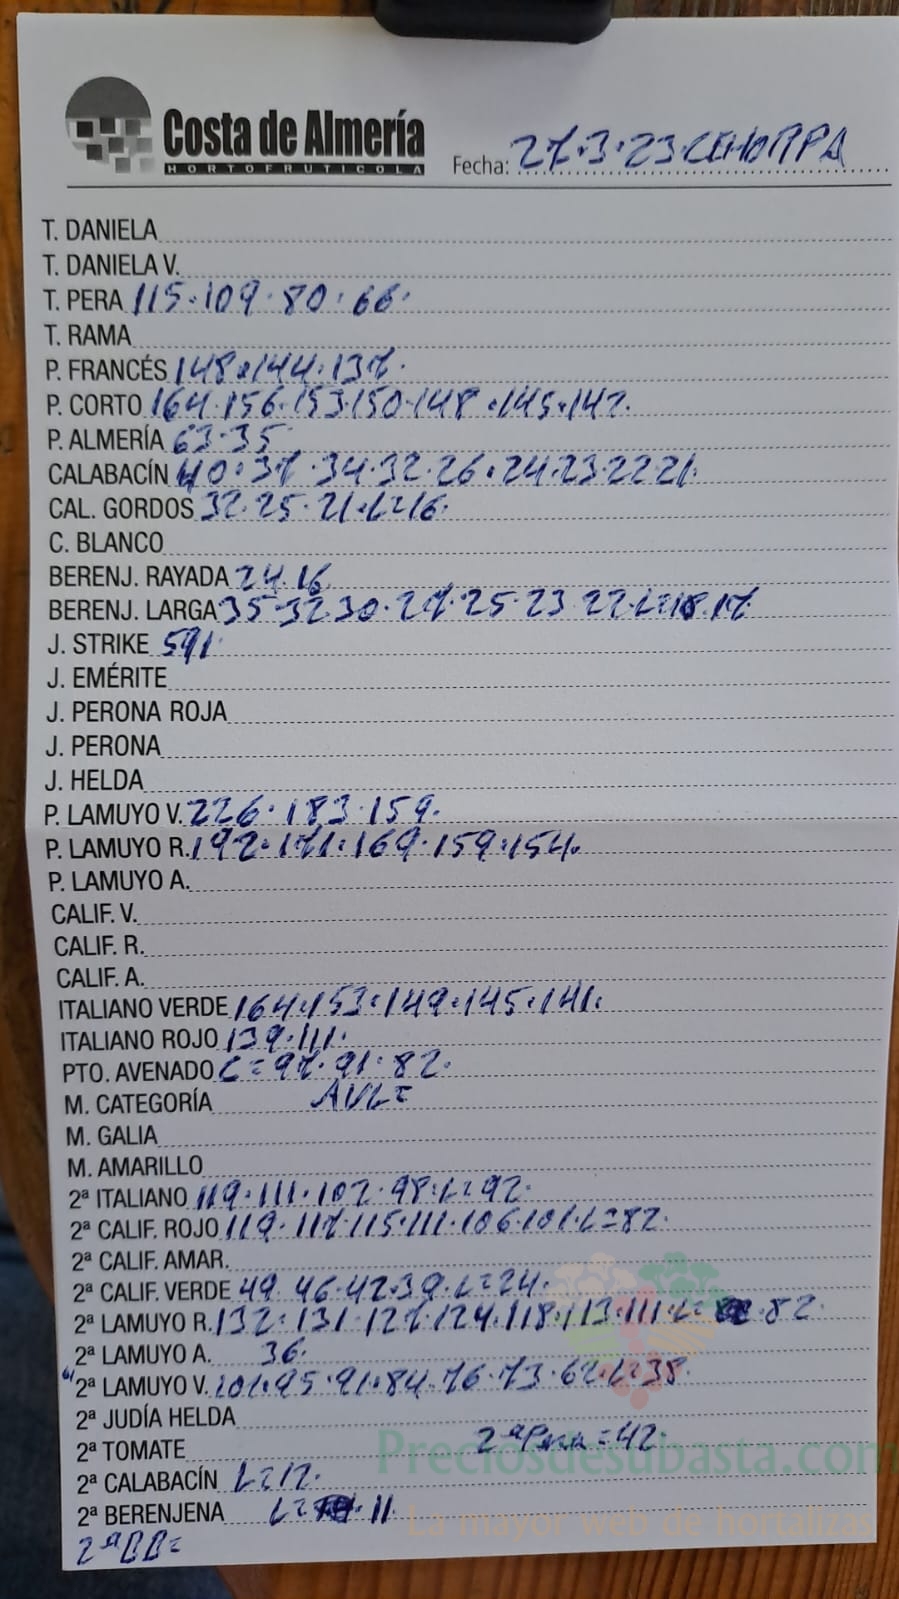 Costa de Almería
HORTOFRUTICOLA
Fecha: 27.3.23
T. DANIELA
T. DANIELA V.
T. PERA 115.109.80.66.
T. RAMA
P. FRANCÉS 148.144.137.
P. CORTO 164.156.153.150.148.145.142.
P. ALMERÍA 63.35
CALABACÍN 40.37.34.32.26.24.23.22.21.
CAL. GORDOS 32.25.21.L=16.
C. BLANCO
BERENJ. RAYADA 24.16
BERENJ. LARGA 35.32.30.27.25.23.22.L=18.17
J. STRIKE 591.
J. EMÉRITE
J. PERONA ROJA
J. PERONA
J. HELDA
P. LAMUYO V. 226.183.159.
P. LAMUYO R. 192.171.169.159.154.
P. LAMUYO A.
CALIF. V.
CALIF. R.
CALIF. A.
ITALIANO VERDE 164.153.149.145.141.
ITALIANO ROJO 139.111.
PTO. AVENADO C=97.91.82.
M. CATEGORÍA AVL=
M. GALIA
M. AMARILLO
2ª ITALIANO 119.111.102.98.L=92.
2ª CALIF. ROJO 119.117.115.111.106.101.L=82.
2ª CALIF. AMAR.
2ª CALIF. VERDE 49.46.42.39.L=24.
2ª LAMUYO R. 132.131.127.124.118.113.111.L= 82.
2ª LAMUYO A. 36.
2ª LAMUYO V. 101.95.91.84.76.73.62.L=38.
2ª JUDÍA HELDA
2ª TOMATE 2ª Pera=42.
2ª CALABACÍN L=12.
2ª BERENJENA L= 11.
2ª BB=
Preciosdesubasta.com
La mayor web de hortalizas